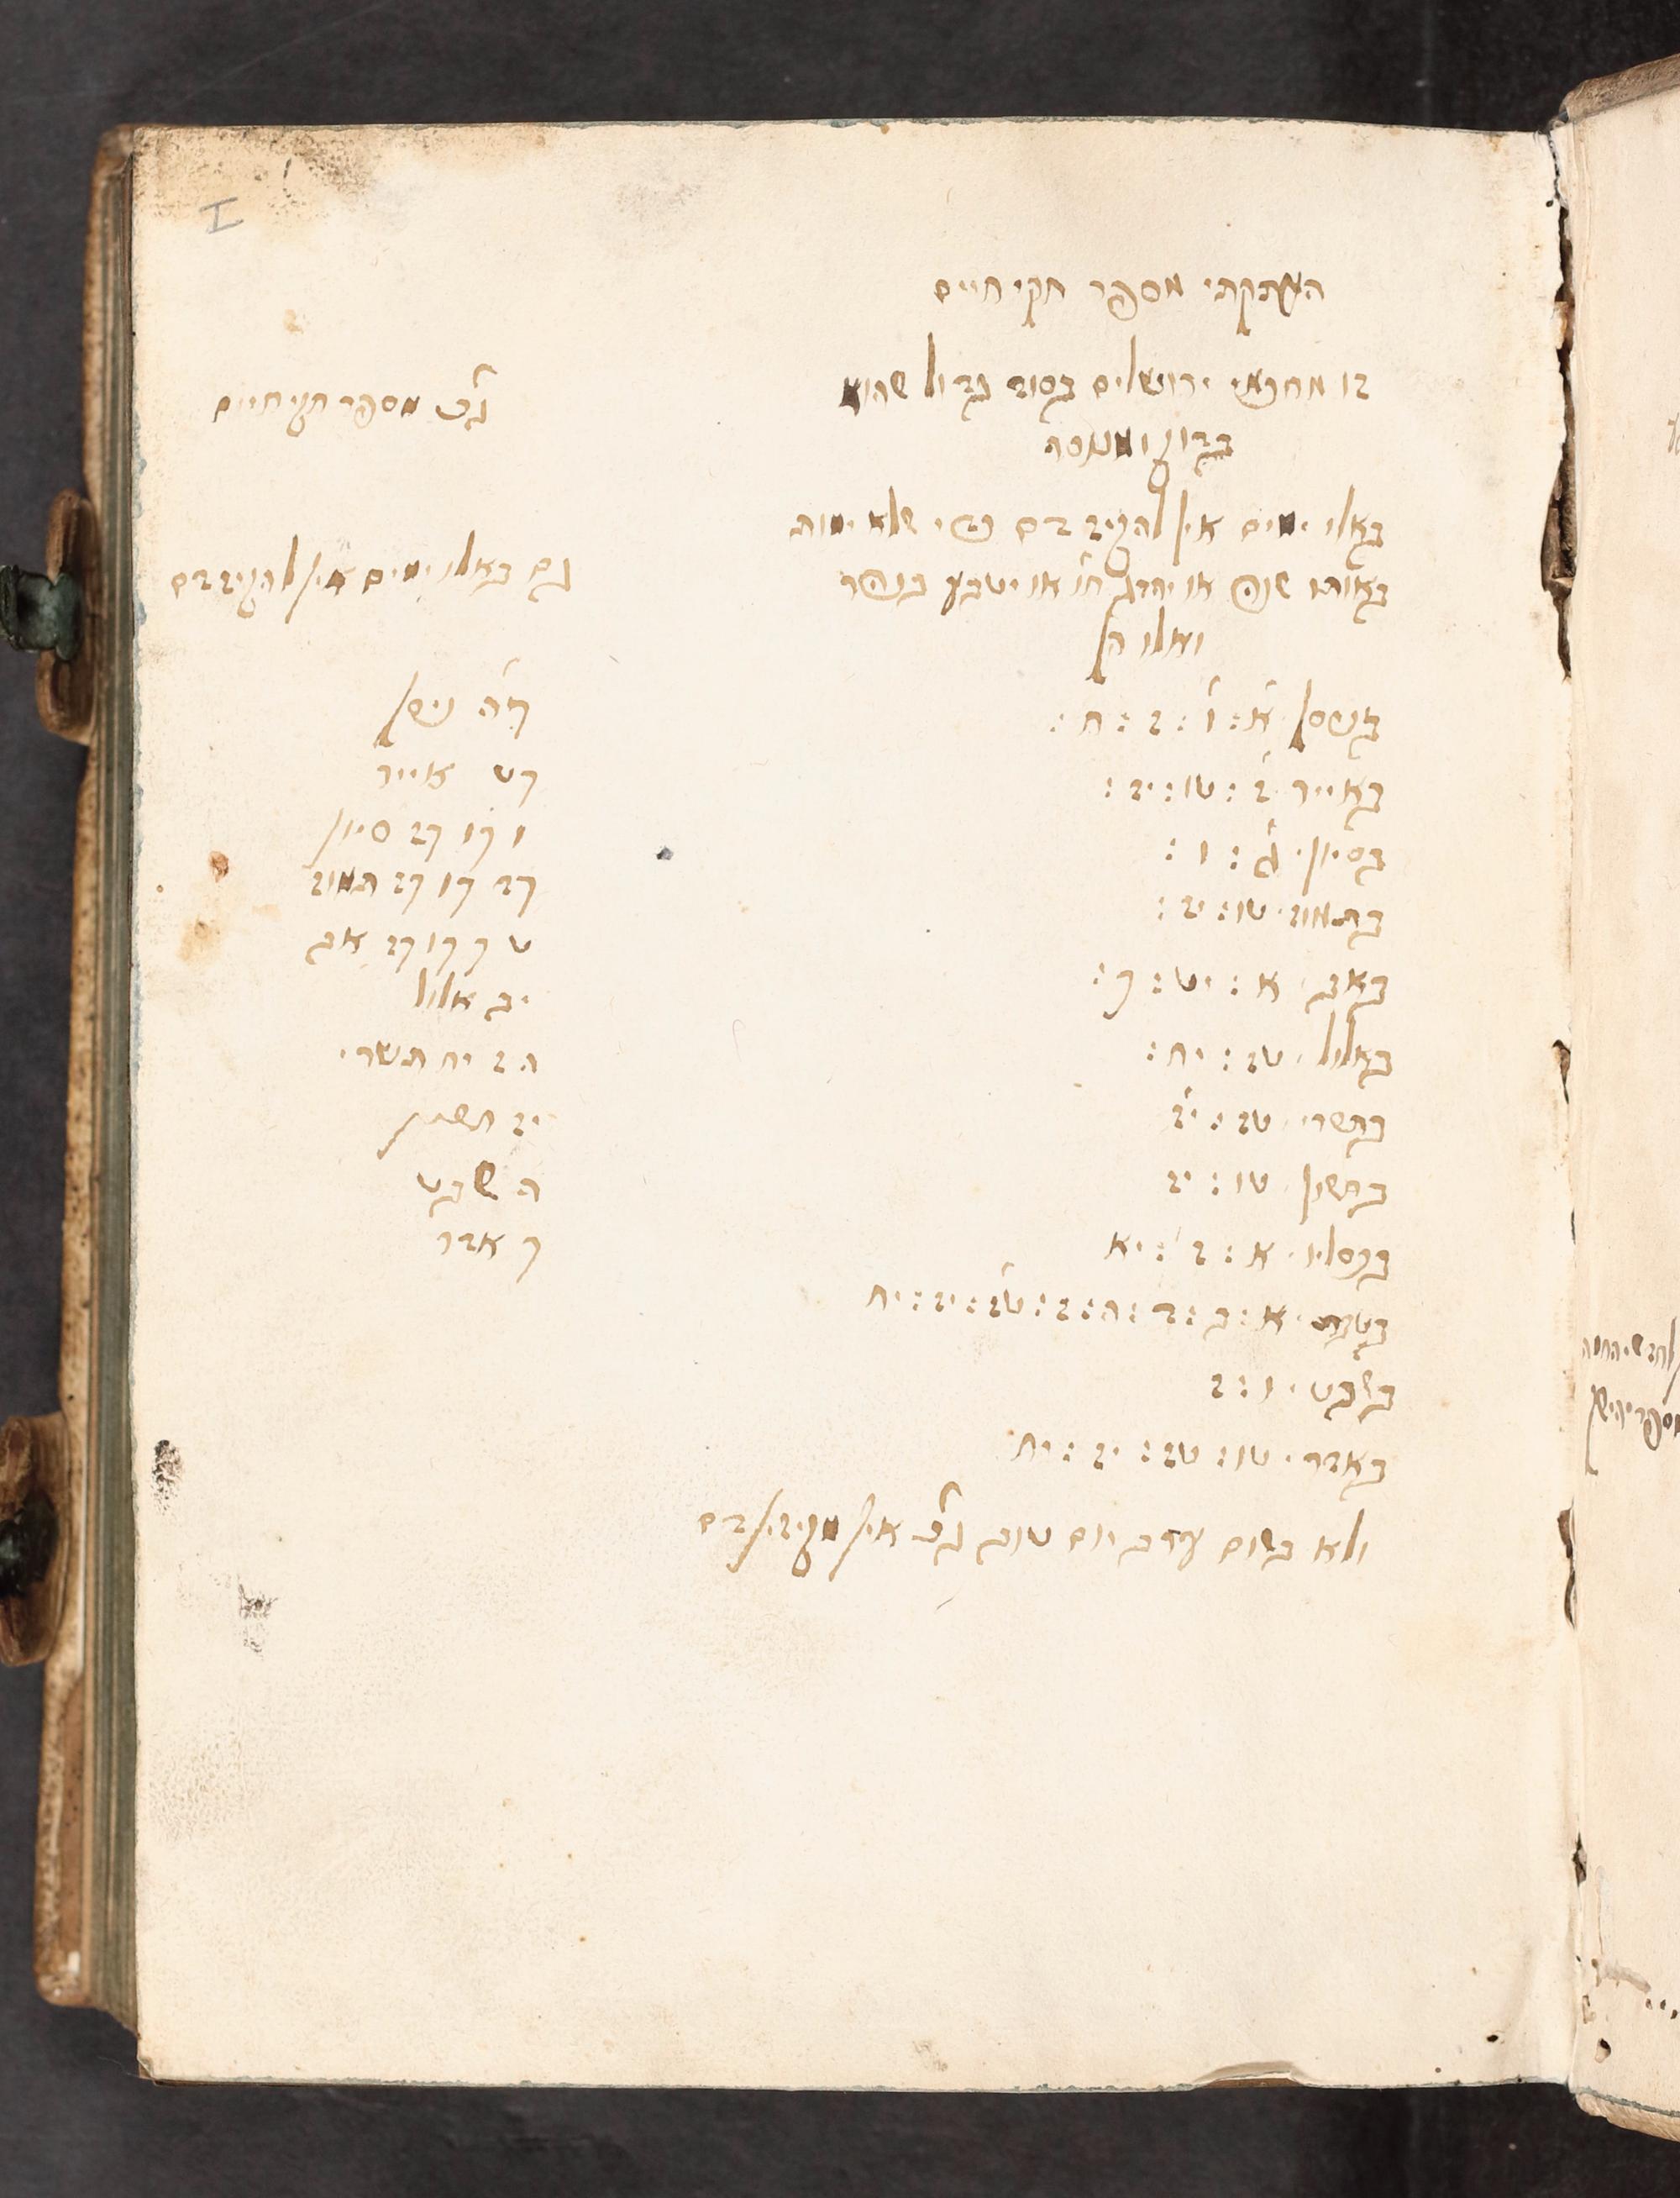 העתקתי מספר חקי חיים
זו מחכמי ירושלים בסוד גדול שהוא
בדוק ומנוסה
באלו ימים אין להקיז דם כדי שלא ימות
באותו שנה או יהרג ח׳ו או יטבע בנהר
ואלו הן
בניסן א : ו : ז : ח :
באייר ז : טו : יז :
בסיון ג : ו :
בתמוז טו : יז :
באב א : יט : כ :
באלול טז : יח :
בתשרי טז : יז
בחשון טו : יז
בכסליו א : ז : יא
בטבת א : ב : ד : ה : ז : טז : יז : יח
בשבט ו : ז
באדר טו : טז : יז : יח
ולא בשום ערב יום טוב ג״כ אין מקיזין דם
ג״כ מספר חקי חיים
גם באלו ימים אין להקיז דם
כ״ה ניסן
כט אייר
ו כו כז סיון
כד כו כז תמוז
ט כ כו כז אב
יב אלול
ה ז יח תשרי
יז חשון
ה שבט
כ אדר